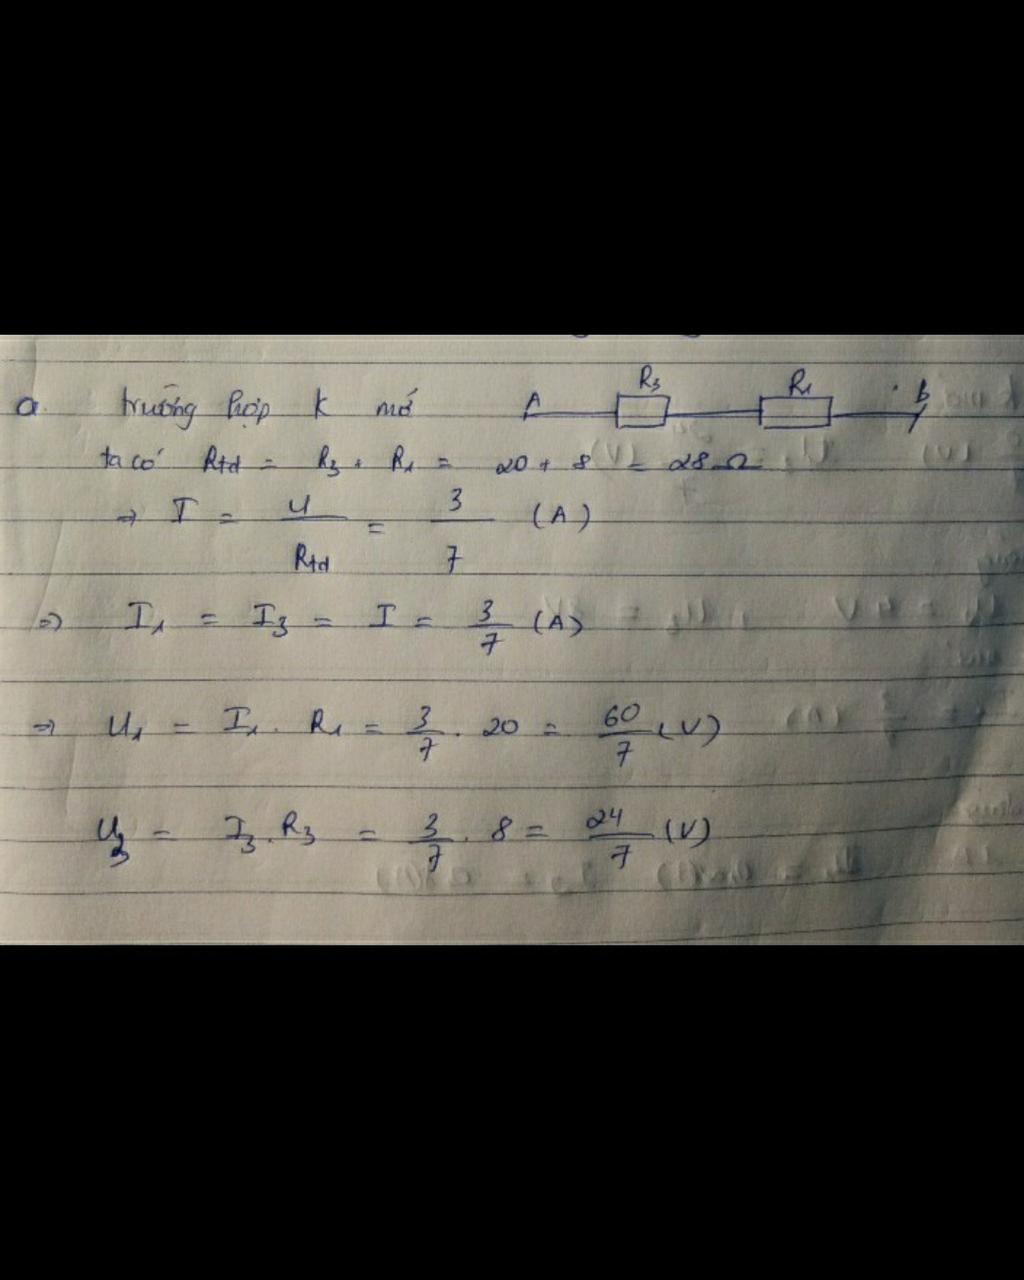 R₃ R₁
a. trường hợp k mở A B
ta có Rtđ = R₃ + R₁ = 20 + 8 = 28 Ω
⇒ I = U/Rtđ = 3/7 (A)
⇒ I₁ = I₃ = I = 3/7 (A)
⇒ U₁ = I₁ . R₁ = 3/7 . 20 = 60/7 (V)
U₃ = I₃ . R₃ = 3/7 . 8 = 24/7 (V)